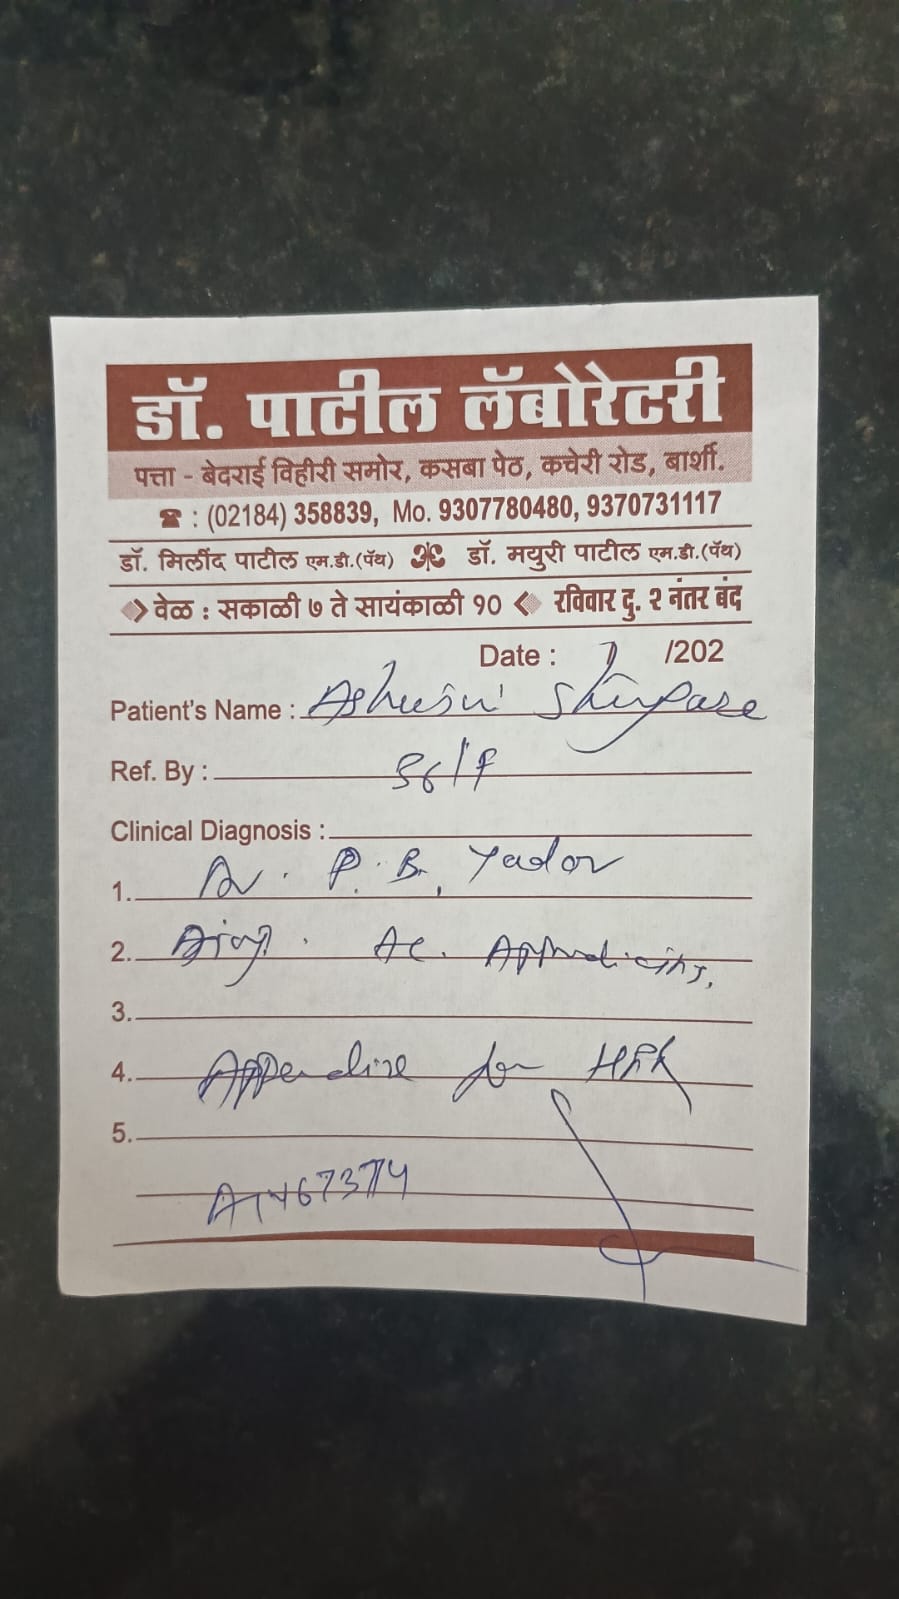 डॉ. पाटील लॅबोरेटरी
पत्ता - बेदराई विहीरी समोर, कसबा पेठ, कचेरी रोड, बार्शी.
☎ : (02184) 358839, Mo. 9307780480, 9370731117
डॉ. मिलींद पाटील एम.डी.(पॅथ) डॉ. मयुरी पाटील एम.डी.(पॅथ)
वेळ : सकाळी ७ ते सायंकाळी १० रविवार दु. २ नंतर बंद
Date : /202
Patient's Name : Ashwini
Ref. By : Self
Clinical Diagnosis :
1. Dr. P. B. Yadav
2. Ac. Appendicitis.
3.
4. for
5.